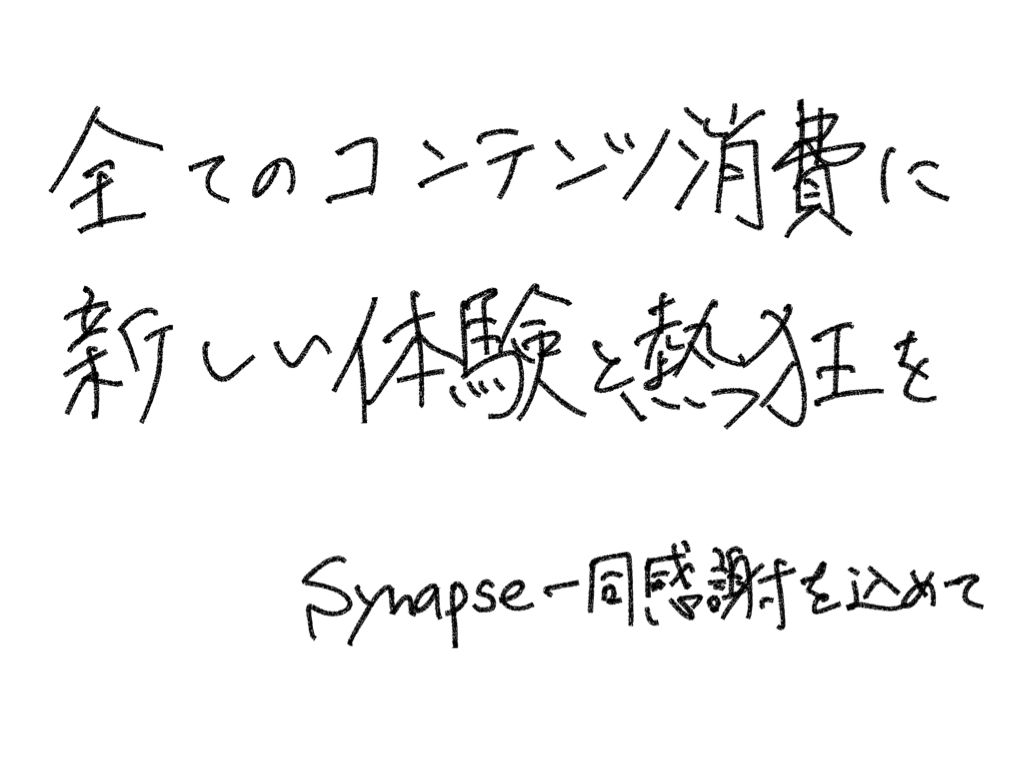 全てのコンテンツ消費に
新しい体験と熱狂を
Synapse一同感謝を込めて